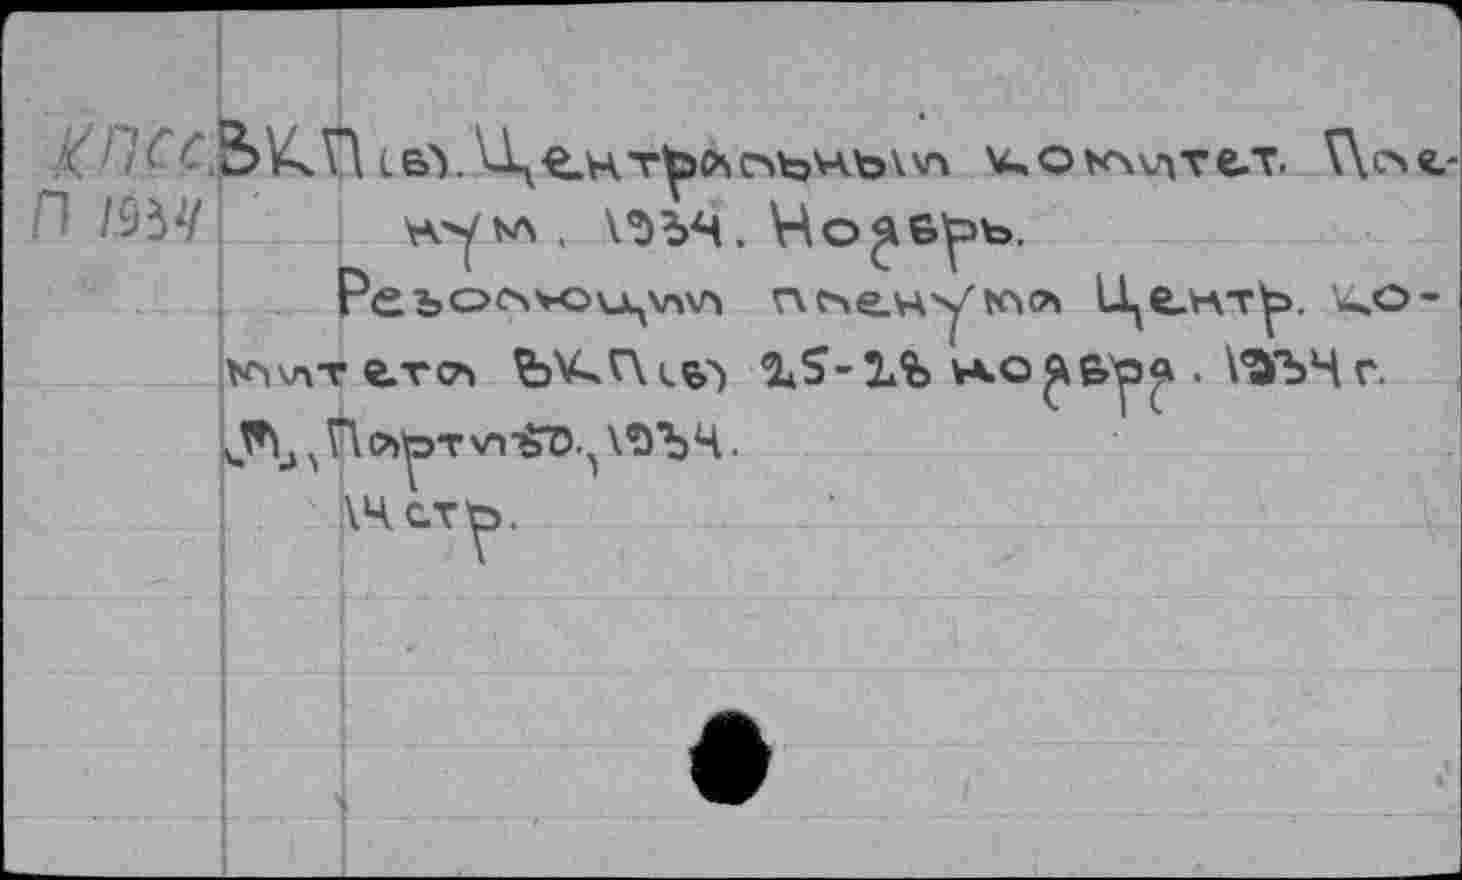 КПСС ВКП(б). Центральный комитет. Пле-
П 1934 нум, 1934. Ноябрь.
Резолюции пленума Центр. ко-
митета ВКП(б) 25-28 ноября. 1934 г.
Партизд., 1934.
14 стр.